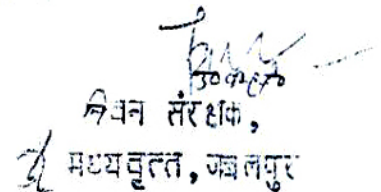 वन संरक्षक,
मध्य वृत्त, जबलपुर